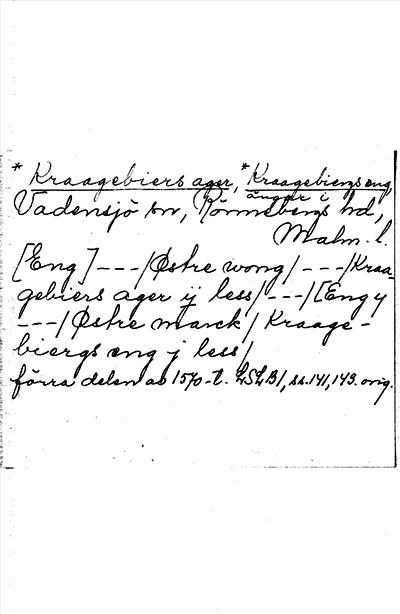 * Kraagebiers ager, * Kraagebiergs eng,
ängar i
Vadensjö sn, Rönnebergs hd,
Malm. l.
[Eng] --- / Østre wong / --- / Kraa-
gebiers ager ij less / --- / [Eng]
--- / Østre marck / Kraage-
biergs eng j less /
förra delen av 1570-t. LSLB1, ss. 141, 143. orig.